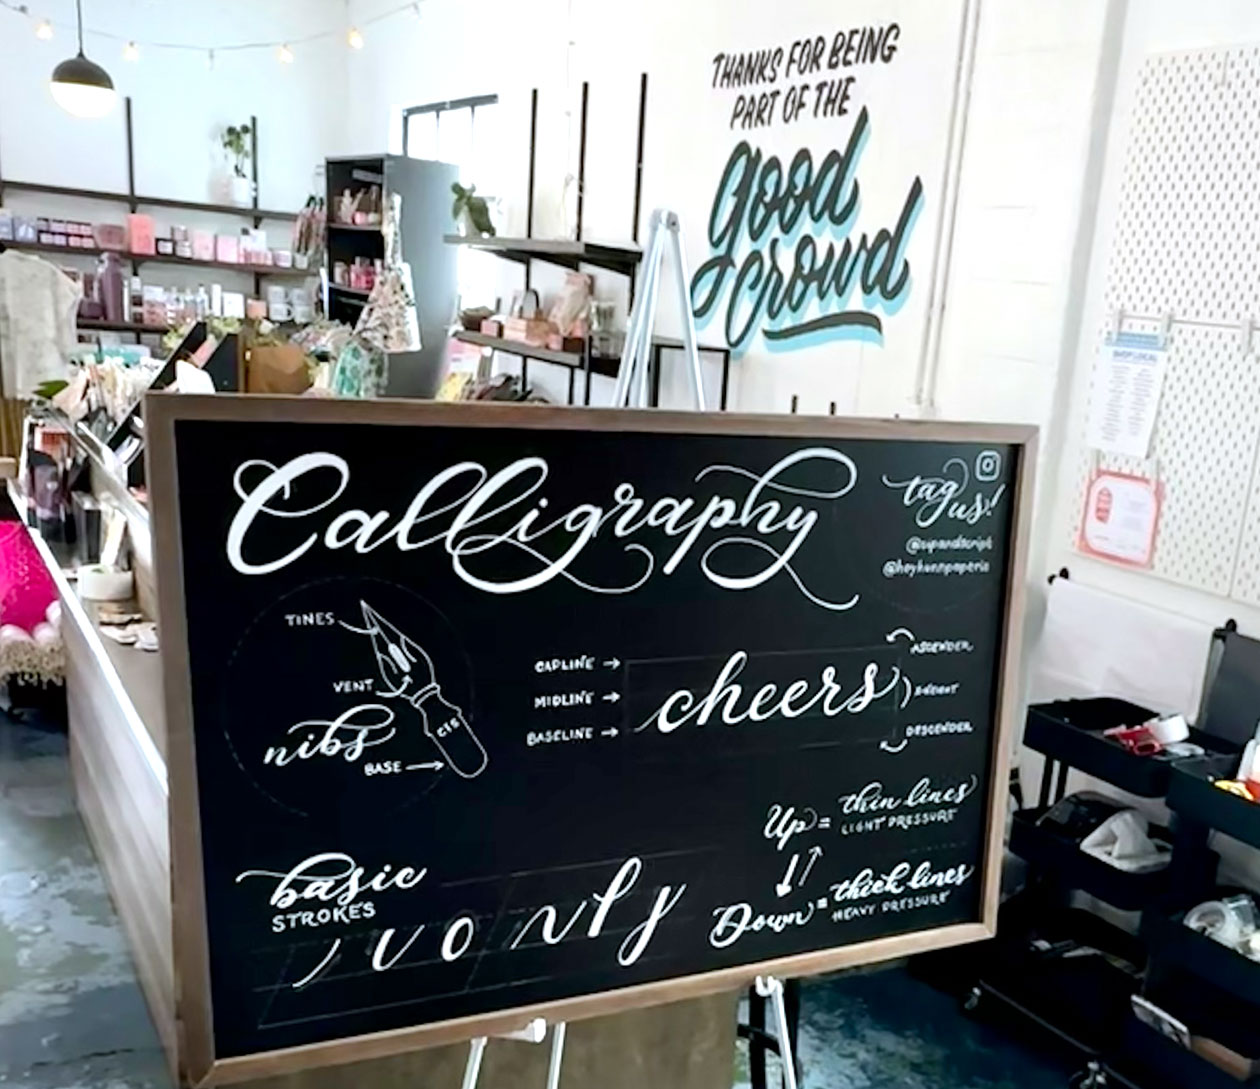 THANKS FOR BEING
PART OF THE
good
crowd
Calligraphy
tag
us!
@sipandscript
TINES
VENT
nibs
BASE
CAPLINE →
MIDLINE →
BASELINE →
cheers
ASCENDER
X-HEIGHT
DESCENDER
Up = thin lines
LIGHT PRESSURE
Down = thick lines
HEAVY PRESSURE
basic
STROKES
SHOP LOCAL